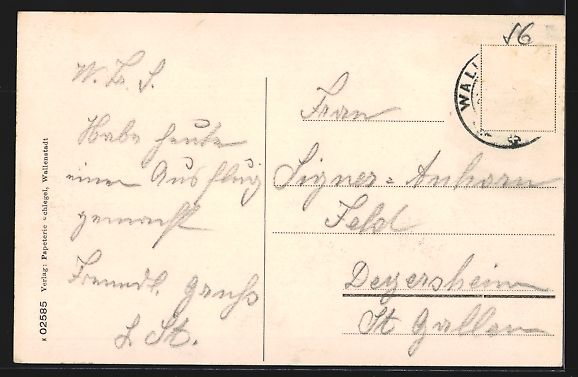 56
WAL
W. Fr. S.
Habe heute
einen Ausflug
gemacht
Freundl. Gruss
L. St.
Frau
Signer-Anhorn
Feld
Degersheim
St Gallen
K 02585 Verlag: Papeterie Schlegel, Wallenstadt